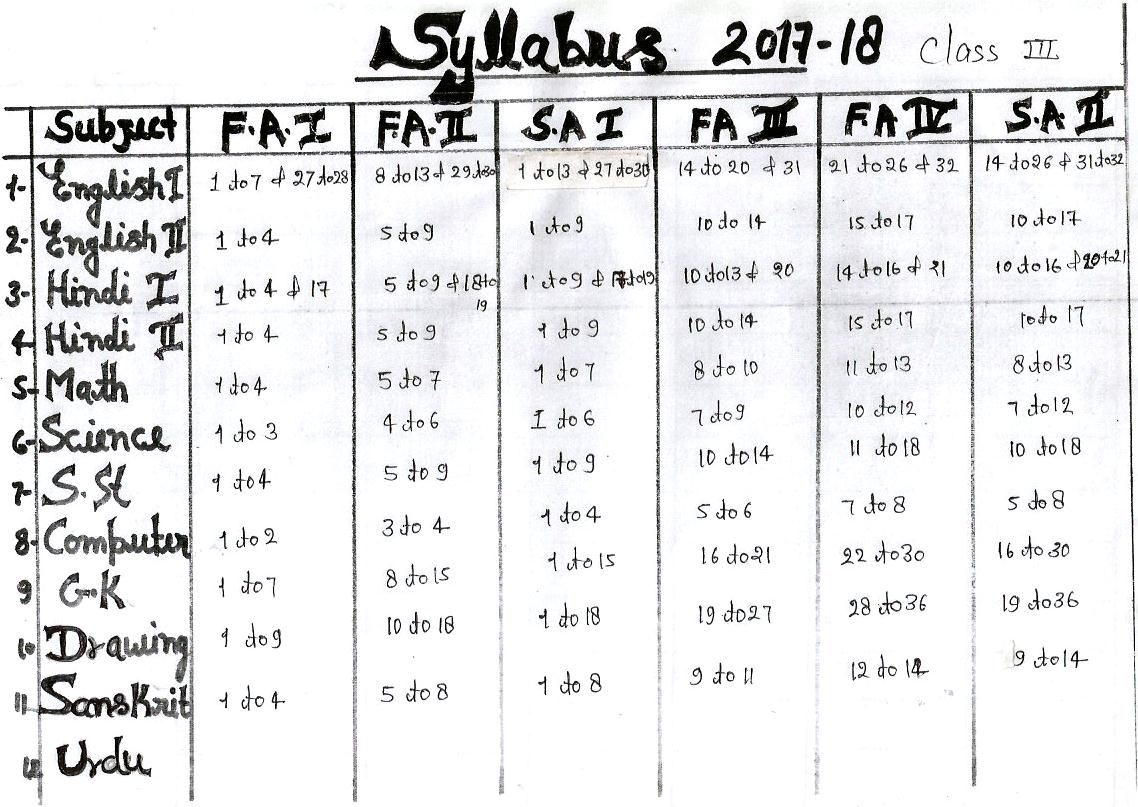 Syllabus 2017-18 Class III
Subject F.A.I F.A.II S.A I FA III F.A IV S.A. II
1- English I 1 to 7 & 27 to 28 8 to 13 & 29 to 30 1 to 13 & 27 to 30 14 to 20 & 31 21 to 26 & 32 14 to 26 & 31 to 32
2- English II 1 to 4 5 to 9 1 to 9 10 to 14 15 to 17 10 to 17
3- Hindi I 1 to 4 & 17 5 to 9 & 18 to 19 1 to 9 & 17 to 19 10 to 13 & 20 14 to 16 & 21 10 to 16 & 20 to 21
4 Hindi II 1 to 4 5 to 9 1 to 9 10 to 14 15 to 17 10 to 17
5- Math 1 to 4 5 to 7 1 to 7 8 to 10 11 to 13 8 to 13
6- Science 1 to 3 4 to 6 I to 6 7 to 9 10 to 12 7 to 12
7- S.St 1 to 4 5 to 9 1 to 9 10 to 14 11 to 18 10 to 18
8- Computer 1 to 2 3 to 4 1 to 4 5 to 6 7 to 8 5 to 8
9 G.K 1 to 7 8 to 15 1 to 15 16 to 21 22 to 30 16 to 30
10 Drawing 1 to 9 10 to 18 1 to 18 19 to 27 28 to 36 19 to 36
11 Sanskrit 1 to 4 5 to 8 1 to 8 9 to 11 12 to 14 9 to 14
12 Urdu